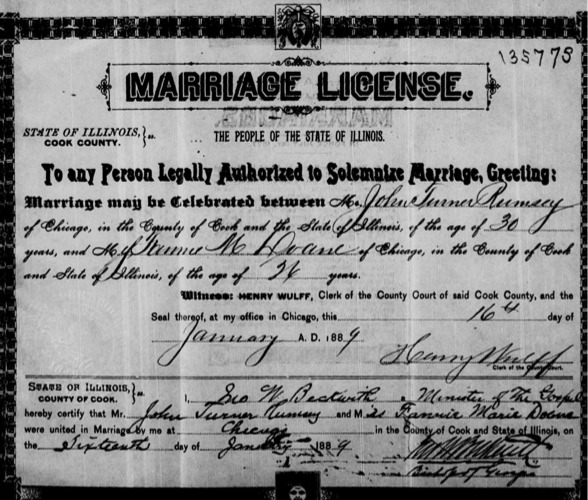 135773
MARRIAGE LICENSE.
STATE OF ILLINOIS, } ss.
COOK COUNTY.
THE PEOPLE OF THE STATE OF ILLINOIS.
To any Person Legally Authorized to Solemnize Marriage, Greeting:
Marriage may be Celebrated between Mr. John Turner Rumsey
of Chicago, in the County of Cook and the State of Illinois, of the age of 30
years, and M Fannie M Doane of Chicago, in the County of Cook
and State of Illinois, of the age of 26 years.
Witness: HENRY WULFF, Clerk of the County Court of said Cook County, and the
Seal thereof, at my office in Chicago, this 16th day of
January A. D. 1889
Henry Wulff
Clerk of the County Court.
STATE OF ILLINOIS, } ss.
COUNTY OF COOK.
I, Geo W Beckwith a Minister of the Gospel
hereby certify that Mr. John Turner Rumsey and Miss Fannie Marie Doane
were united in Marriage by me at Chicago in the County of Cook and State of Illinois, on
the Sixteenth day of January 1889
Bishop of Georgia